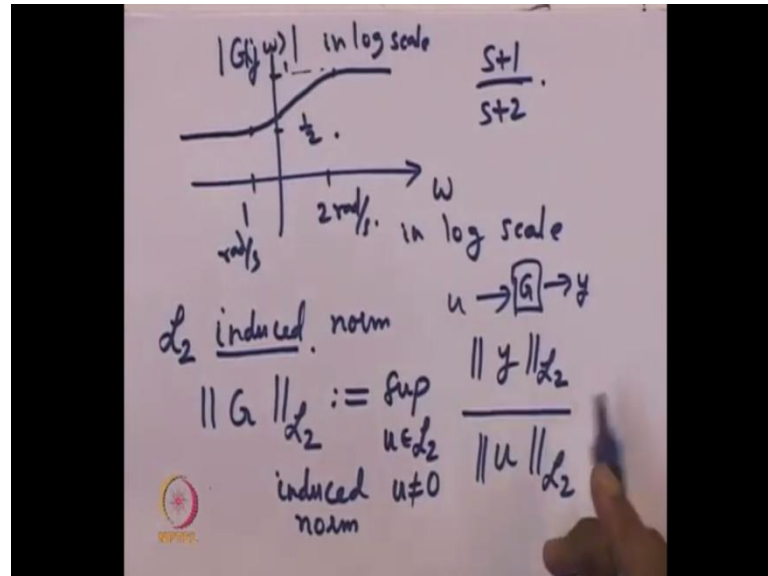 |G(jω)| in log scale
1
s+1
s+2 .
1/2 .
1 rad/s
2 rad/s.
ω
in log scale
u → G → y
L₂ induced norm
||G||L₂ := sup ||y||L₂
u∈L₂ ||u||L₂
induced u≠0
norm
NPTEL